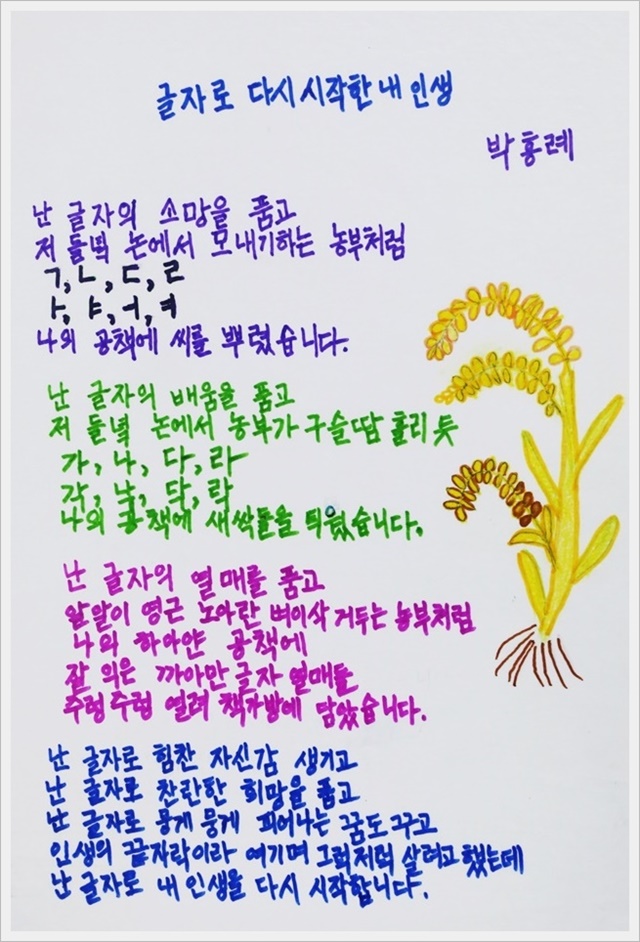 글자로 다시 시작한 내 인생
박홍례
난 글자의 소망을 품고
저 들녘 논에서 모내기하는 농부처럼
ㄱ, ㄴ, ㄷ, ㄹ
ㅏ, ㅑ, ㅓ, ㅕ
나의 공책에 씨를 뿌렸습니다.
난 글자의 배움을 품고
저 들녘 논에서 농부가 구슬땀 흘리듯
가, 나, 다, 라
각, 낙, 닥, 락
나의 공책에 새싹들을 틔웠습니다.
난 글자의 열매를 품고
알알이 영근 노아란 벼이삭 거두는 농부처럼
나의 하아얀 공책에
잘 익은 까아만 글자 열매들
주렁주렁 열려 책가방에 담았습니다.
난 글자로 힘찬 자신감 생기고
난 글자로 찬란한 희망을 품고
난 글자로 뭉게 뭉게 피어나는 꿈도 꾸고
인생의 끝자락이라 여기며 그럭저럭 살려고 했는데
난 글자로 내 인생을 다시 시작합니다.